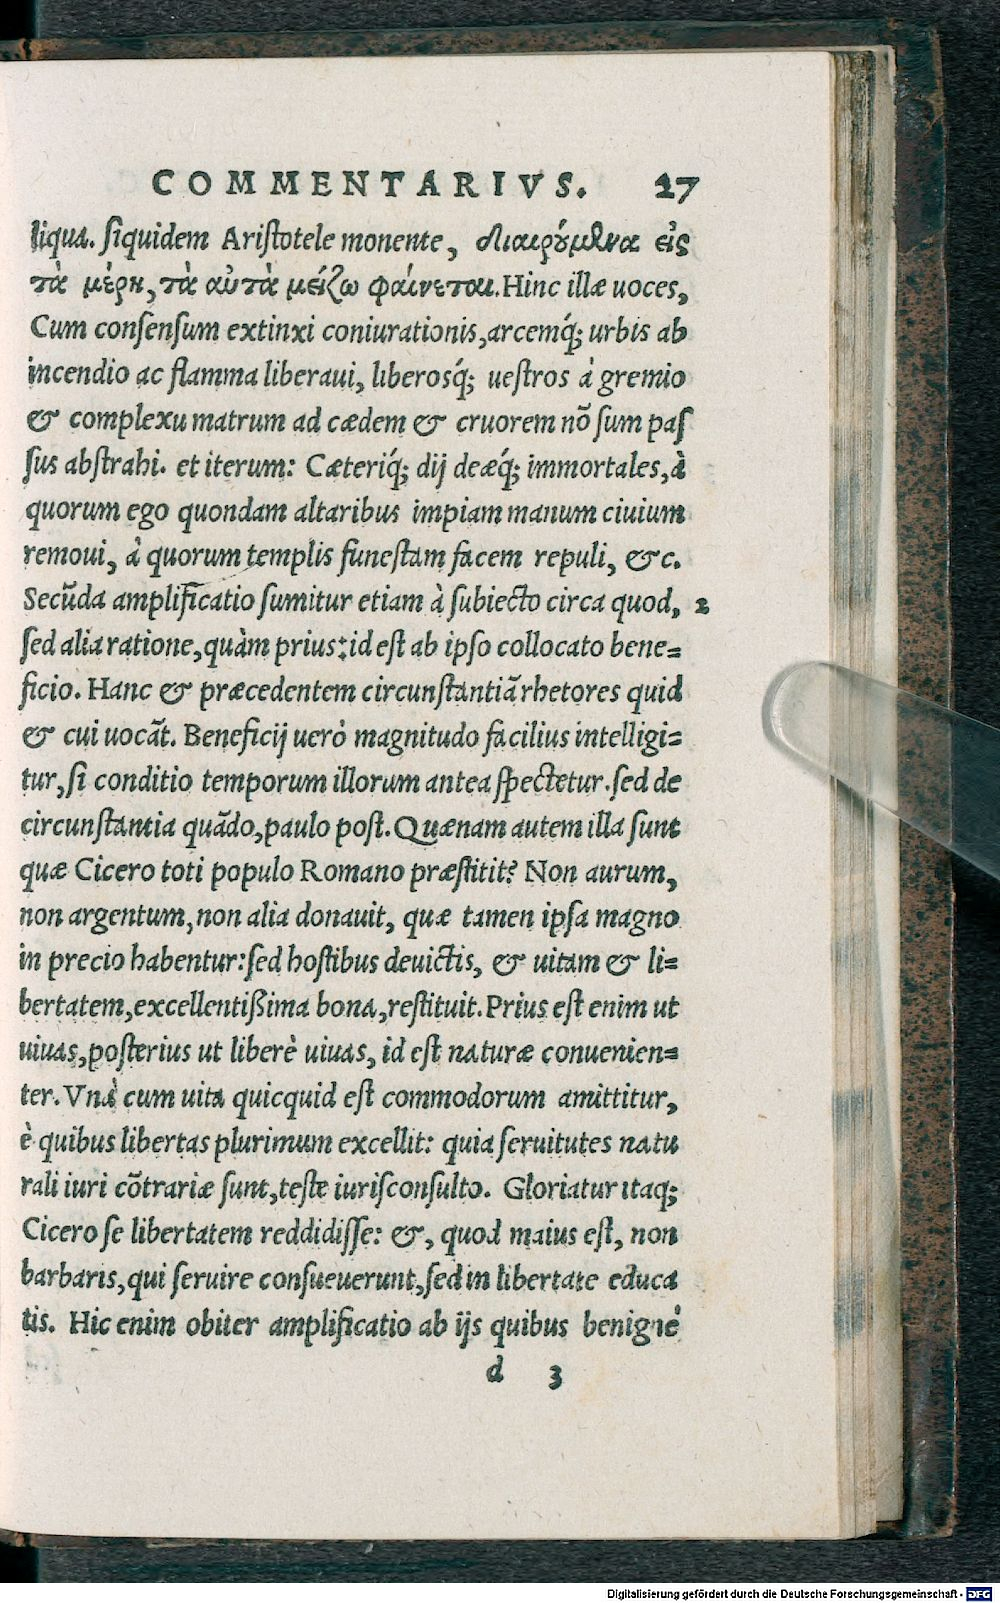 COMMENTARIVS. 27
liqua. siquidem Aristotele monente, διαιρούμενα εἰς
τὰ μέρη, τὰ αὐτὰ μείζω φαίνεται. Hinc illæ uoces,
Cum consensum extinxi coniurationis, arcemq́; urbis ab
incendio ac flamma liberaui, liberosq́; uestros à gremio
& complexu matrum ad cædem & cruorem nō sum pas
sus abstrahi. et iterum: Cæteriq́; dij deæq́; immortales, à
quorum ego quondam altaribus impiam manum ciuium
remoui, à quorum templis funestam facem repuli, &c.
Secūda amplificatio sumitur etiam à subiecto circa quod, 2
sed alia ratione, quàm prius: id est ab ipso collocato bene=
ficio. Hanc & præcedentem circunstantiā rhetores quid
& cui uocāt. Beneficij uerò magnitudo facilius intelligi=
tur, si conditio temporum illorum antea spectetur. sed de
circunstantia quādo, paulo post. Quænam autem illa sunt
quæ Cicero toti populo Romano præstitit? Non aurum,
non argentum, non alia donauit, quæ tamen ipsa magno
in precio habentur: sed hostibus deuictis, & uitam & li=
bertatem, excellentißima bona, restituit. Prius est enim ut
uiuas, posterius ut liberè uiuas, id est naturæ conuenien=
ter. Vnà cum uita quicquid est commodorum amittitur,
è quibus libertas plurimum excellit: quia seruitutes natu
rali iuri cōtrariæ sunt, teste iurisconsulto. Gloriatur itaq;
Cicero se libertatem reddidisse: &, quod maius est, non
barbaris, qui seruire consueuerunt, sed in libertate educa
tis. Hic enim obiter amplificatio ab ijs quibus benignè
d 3
Digitalisierung gefördert durch die Deutsche Forschungsgemeinschaft - DFG